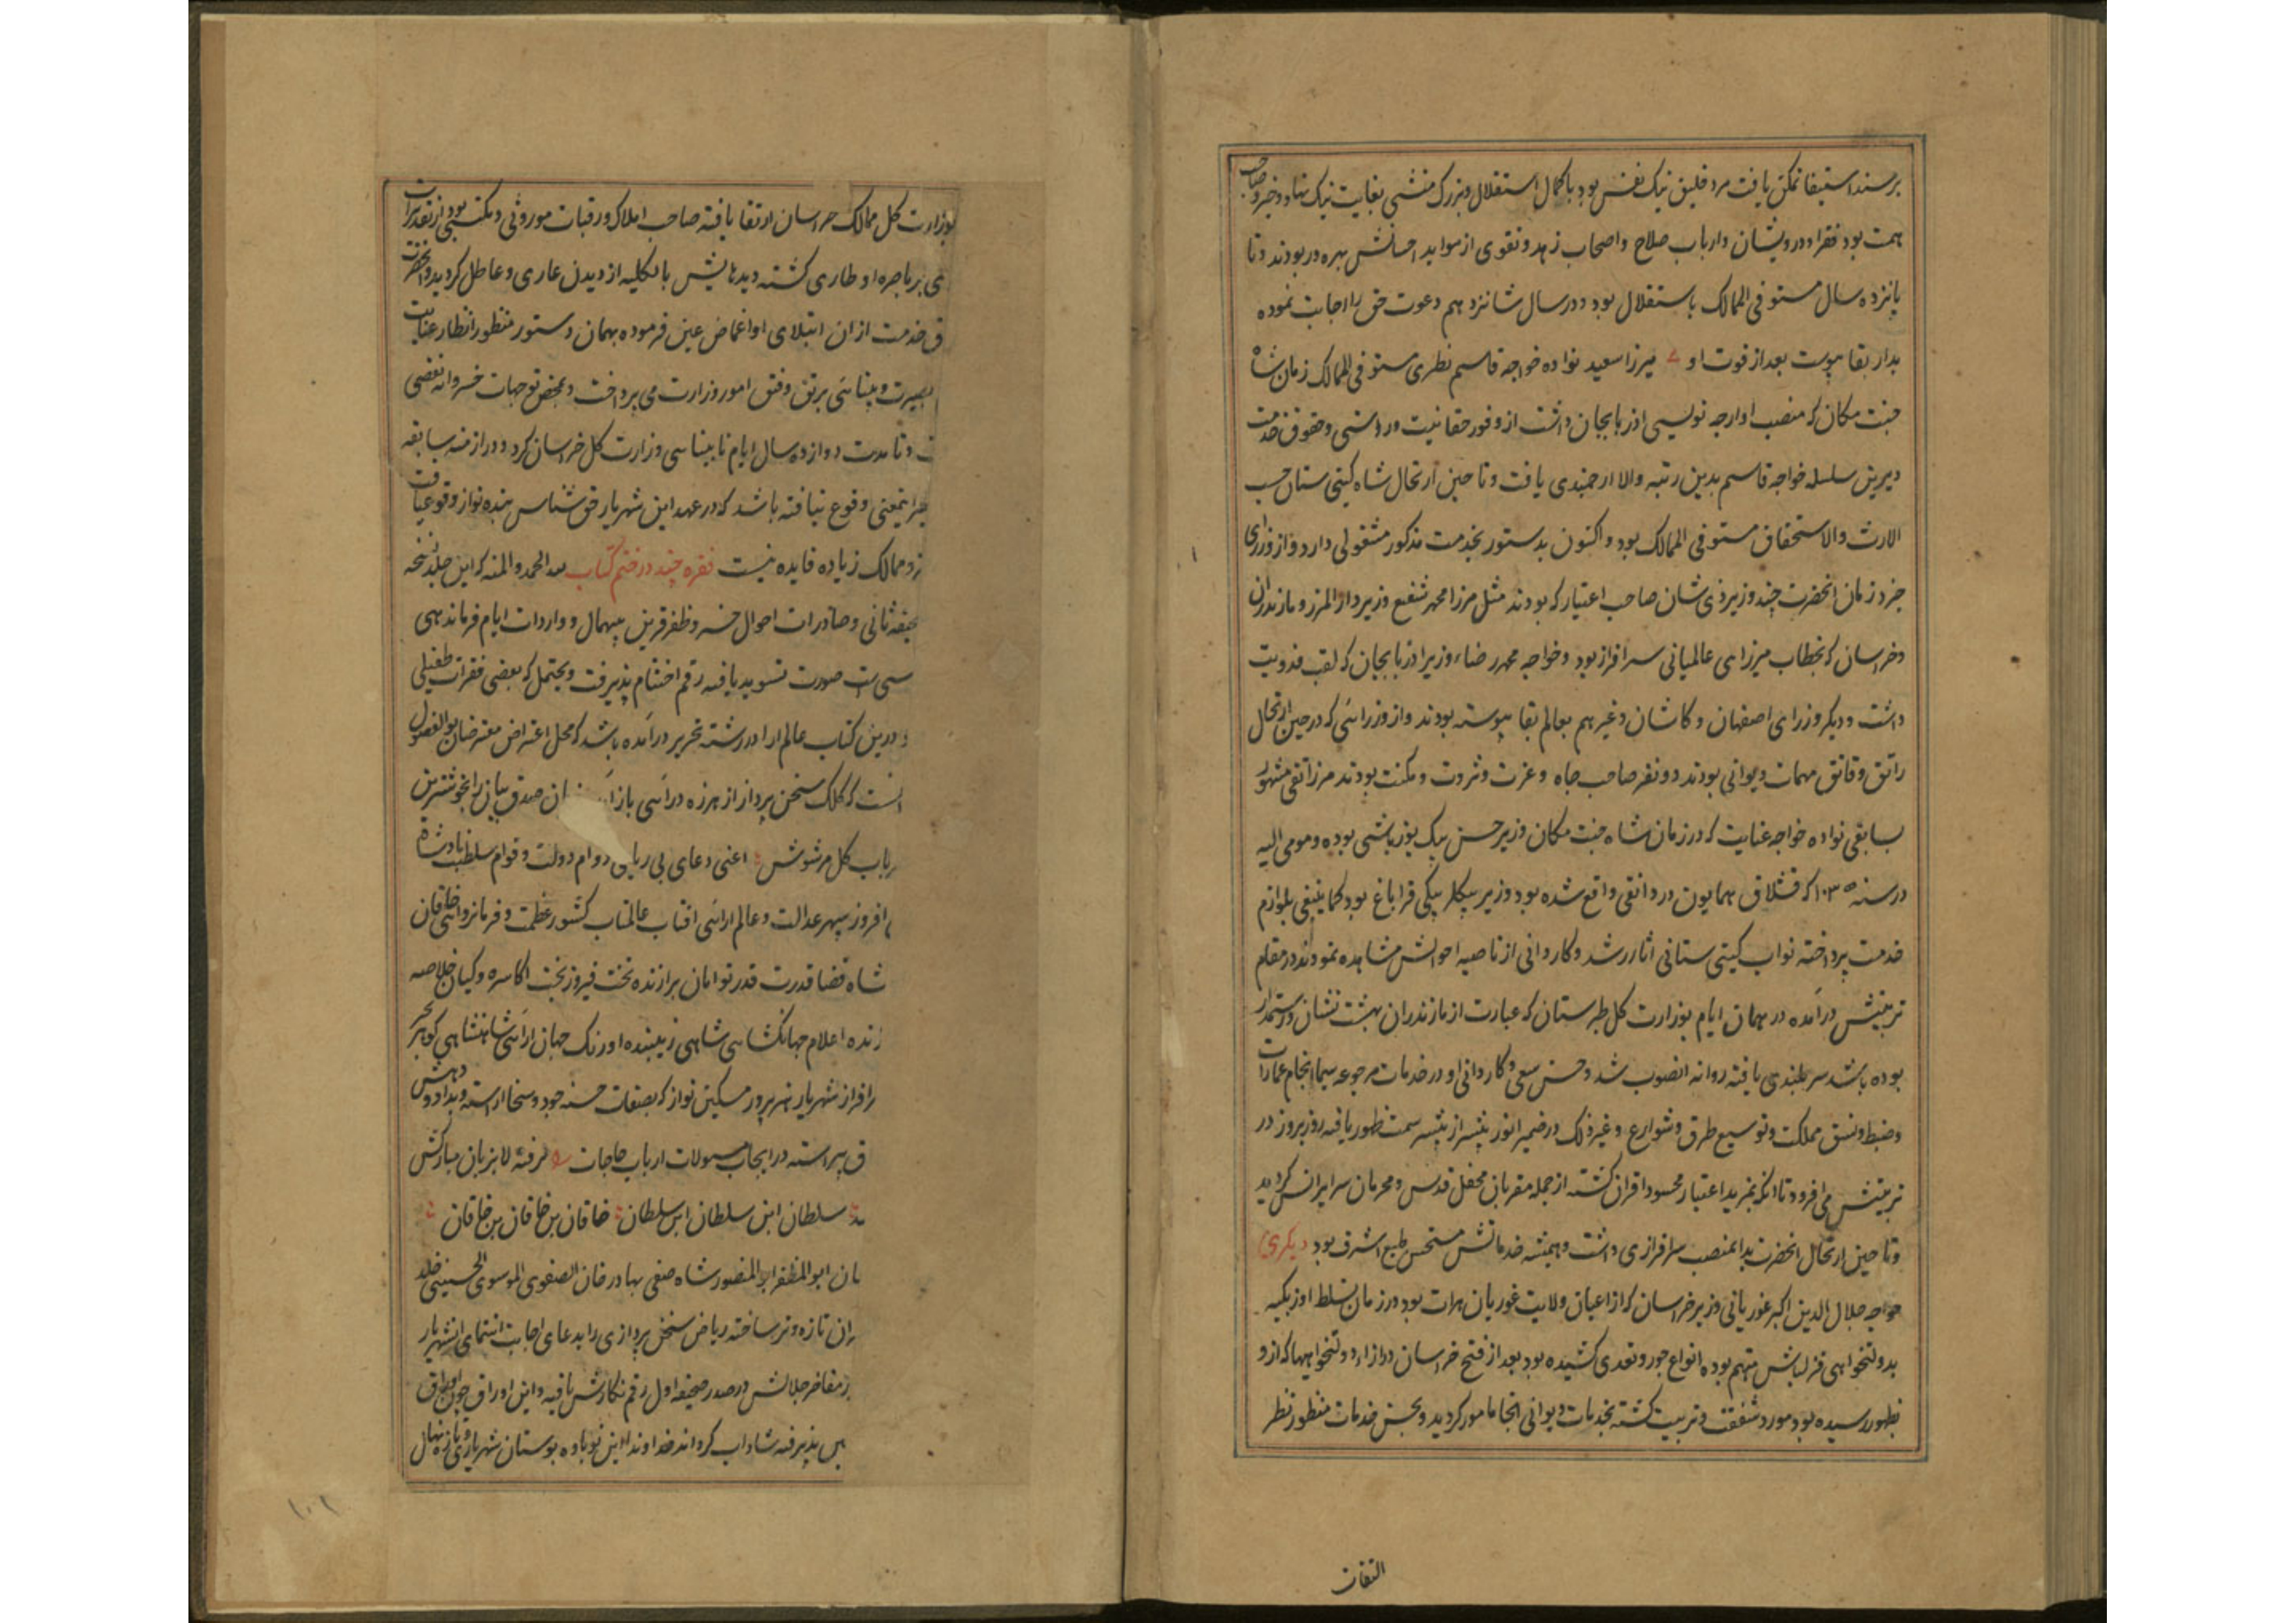 برمسند استیفا تمکن یافت مرد خلیق نیک نفس بود با کمال استقلال و بزرک منشی بغایت نیک نهاد و خیر و صاحب
همت بود فقرا و درویشان و ارباب صلاح و اصحاب زهد و تقوی از مواید احسانش بهره ور بودند و تا
پانزده سال مستوفی الممالک باستقلال بود و در سال شانزدهم دعوت حق را اجابت نموده
بدار بقا پیوست بعد از فوت او میرزا سعید نواده خواجه قاسم نطری مستوفی الممالک زمان شاه
جنت مکان که منصب اوارجه نویسی اذربایجان داشت از وفور حقانیت و راستی و حقوق خدمت
دیرین سلسله خواجه قاسم بدین رتبه والا ارجمندی یافت و تا حین ارتحال شاه کیتی ستان حسب
الارث والاستحقاق مستوفی الممالک بود و اکنون بدستور بخدمت مذکور مشغولی دارد و از وزرای
جزو زمان انحضرت چند وزیر ذی شان صاحب اعتبار که بودند مثل مرزا محمد شفیع وزیر دار المرز و مازندران
و خراسان که بخطاب میرزای عالمیانی سرافراز بود و خواجه محمد رضاء وزیر اذربایجان که لقب فدویت
داشت و دیکر وزرای اصفهان و کاشان و غیرهم بعالم بقا پیوسته بودند و از وزرائی که در حین ارتحال
راتق و فاتق مهمات دیوانی بودند دو نفر صاحب جاه و عزت و ثروت و مکنت بودند مرزا تقی مشهور
بسابقی نواده خواجه عنایت که در زمان شاه جنت مکان وزیر حسن بیک یوزباشی بوده و مومی الیه
در سنه ۱۰۳۵ که قشلاق همایون در دانقی واقع شده بود وزیر بیکلر بیکی قراباغ بود کما ینبغی بلوازم
خدمت پرداخته نواب کیتی ستانی اثار رشد و کاردانی از ناصیه احوالش مشاهده نمودند در مقام
تربیتش درآمده در همان ایام بوزارت کل طبرستان که عبارت از مازندران بهشت نشان و رستمدار
بوده باشد سربلندی یافته روانه انصوب شد و حسن سعی و کاردانی او در خدمات مرجوعه سیما انجام عمارات
و ضبط و نسق مملکت و توسیع طرق و شوارع و غیر ذلک در ضمیر انور بیشتر از پیشتر سمت ظهور یافته روز بروز در
تربیتش می افزود تا انکه بمزید اعتبار محسود اقران کشته از جمله مقربان محفل قدس و محرمان سرایر انس کردید
و تا حین ارتحال انحضرت بدا نمنصب سرافرازی داشت و همیشه خدماتش مستحسن طبع اشرف بود دیکری
خواجه جلال الدین اکبر غوریانی وزیر خراسان که از اعیان ولایت غوریان هرات بود در زمان تسلط اوزبکیه
بدولتخواهی قزلباش متهم بوده انواع جور و تعدی کشیده بود بعد از فتح خراسان در ازاء دولتخواهیها که ازو
بظهور رسیده بود مورد شفقت و تربیت کشته بخدمات دیوانی انجا مامور کردید و بحسن خدمات منظور نظر
التفات
بوزارت کل ممالک خراسان ارتقا یافته صاحب املاک و رقبات موروثی و مکتسبی بود از تقدیرات
ی بر باصره او طاری کشته دیدهایش بالکلیه از دیدن عاری و عاطل کردید و انحضرت
ق خدمت از ان ابتلای او اغماض عین فرموده بهمان دستور منظور انظار عنایت
بصیرت و بینائی برتق و فتق امور وزارت می پرداخت و بمحض توجهات خسروانه نقصی
و تا مدت دوازده سال ایام نابینائی وزارت کل خراسان کرد و در ازمنه سابقه
اینمعنی وقوع نیافته باشد که در عهد این شهریار حق شناس بنده نواز وقوع یافت
زو ممالک زیاده فایده نیست فقره چند در ختم کتاب لله الحمد والمنه که این جلد نسخه
صحیفه ثانی و صادرات احوال خسرو ظفر قرین بیهمال و واردات ایام فرماندهی
صورت تسوید یافته رقم اختتام پذیرفت و یحتمل که بعضی فقرات طفیلی
و درین کتاب عالم ارا در رشته تحریر درآمده باشد که محل اعتراض معترضان بوالفضول
انست که کلک سخن پرداز از هرزه درائی باز صدق بیان را بخوشترین
رباب کل مرشوش اعنی دعای بی ریایی دوام دولت و قوام سلطنت پادشاه
افروز سپهر عدالت و عالم ارائی افتاب عالمتاب کشور عظمت و فرمانروائی خاقان
شاه قضا قدرت قدر توامان برازنده تخت فیروز بخت اکاسره و کیان خلاصه
زنده اعلام جهانکشائی شاهی زیبنده اورنک جهان ارائی شاهنشاهی کوهر بحر
رافراز شهریار هنرپرور مسکین نواز که بصفات حسنه جود و سخا اراسته و بداد و دهش
ق پیراسته در ایجاب مسولات ارباب حاجات نرفته لا بزبان مبارکش
سلطان ابن سلطان ابن سلطان خاقان بن خاقان بن خاقان
ان ابو المظفر ابو المنصور شاه صفی بهادر خان الصفوی الموسوی الحسینی خلد
ران تازه و تر ساخته ریاض سخن پردازی را بدعای اجابت انتمای انشهریار
ز مفاخر جلالش در صدر صحیفه اول رقم نکارش یافته و این اوراق چون اوراق
پذیرفته شاداب کرداند خداوندا این نوباوه بوستان شهریاری و تازه نهال
۱۰۱